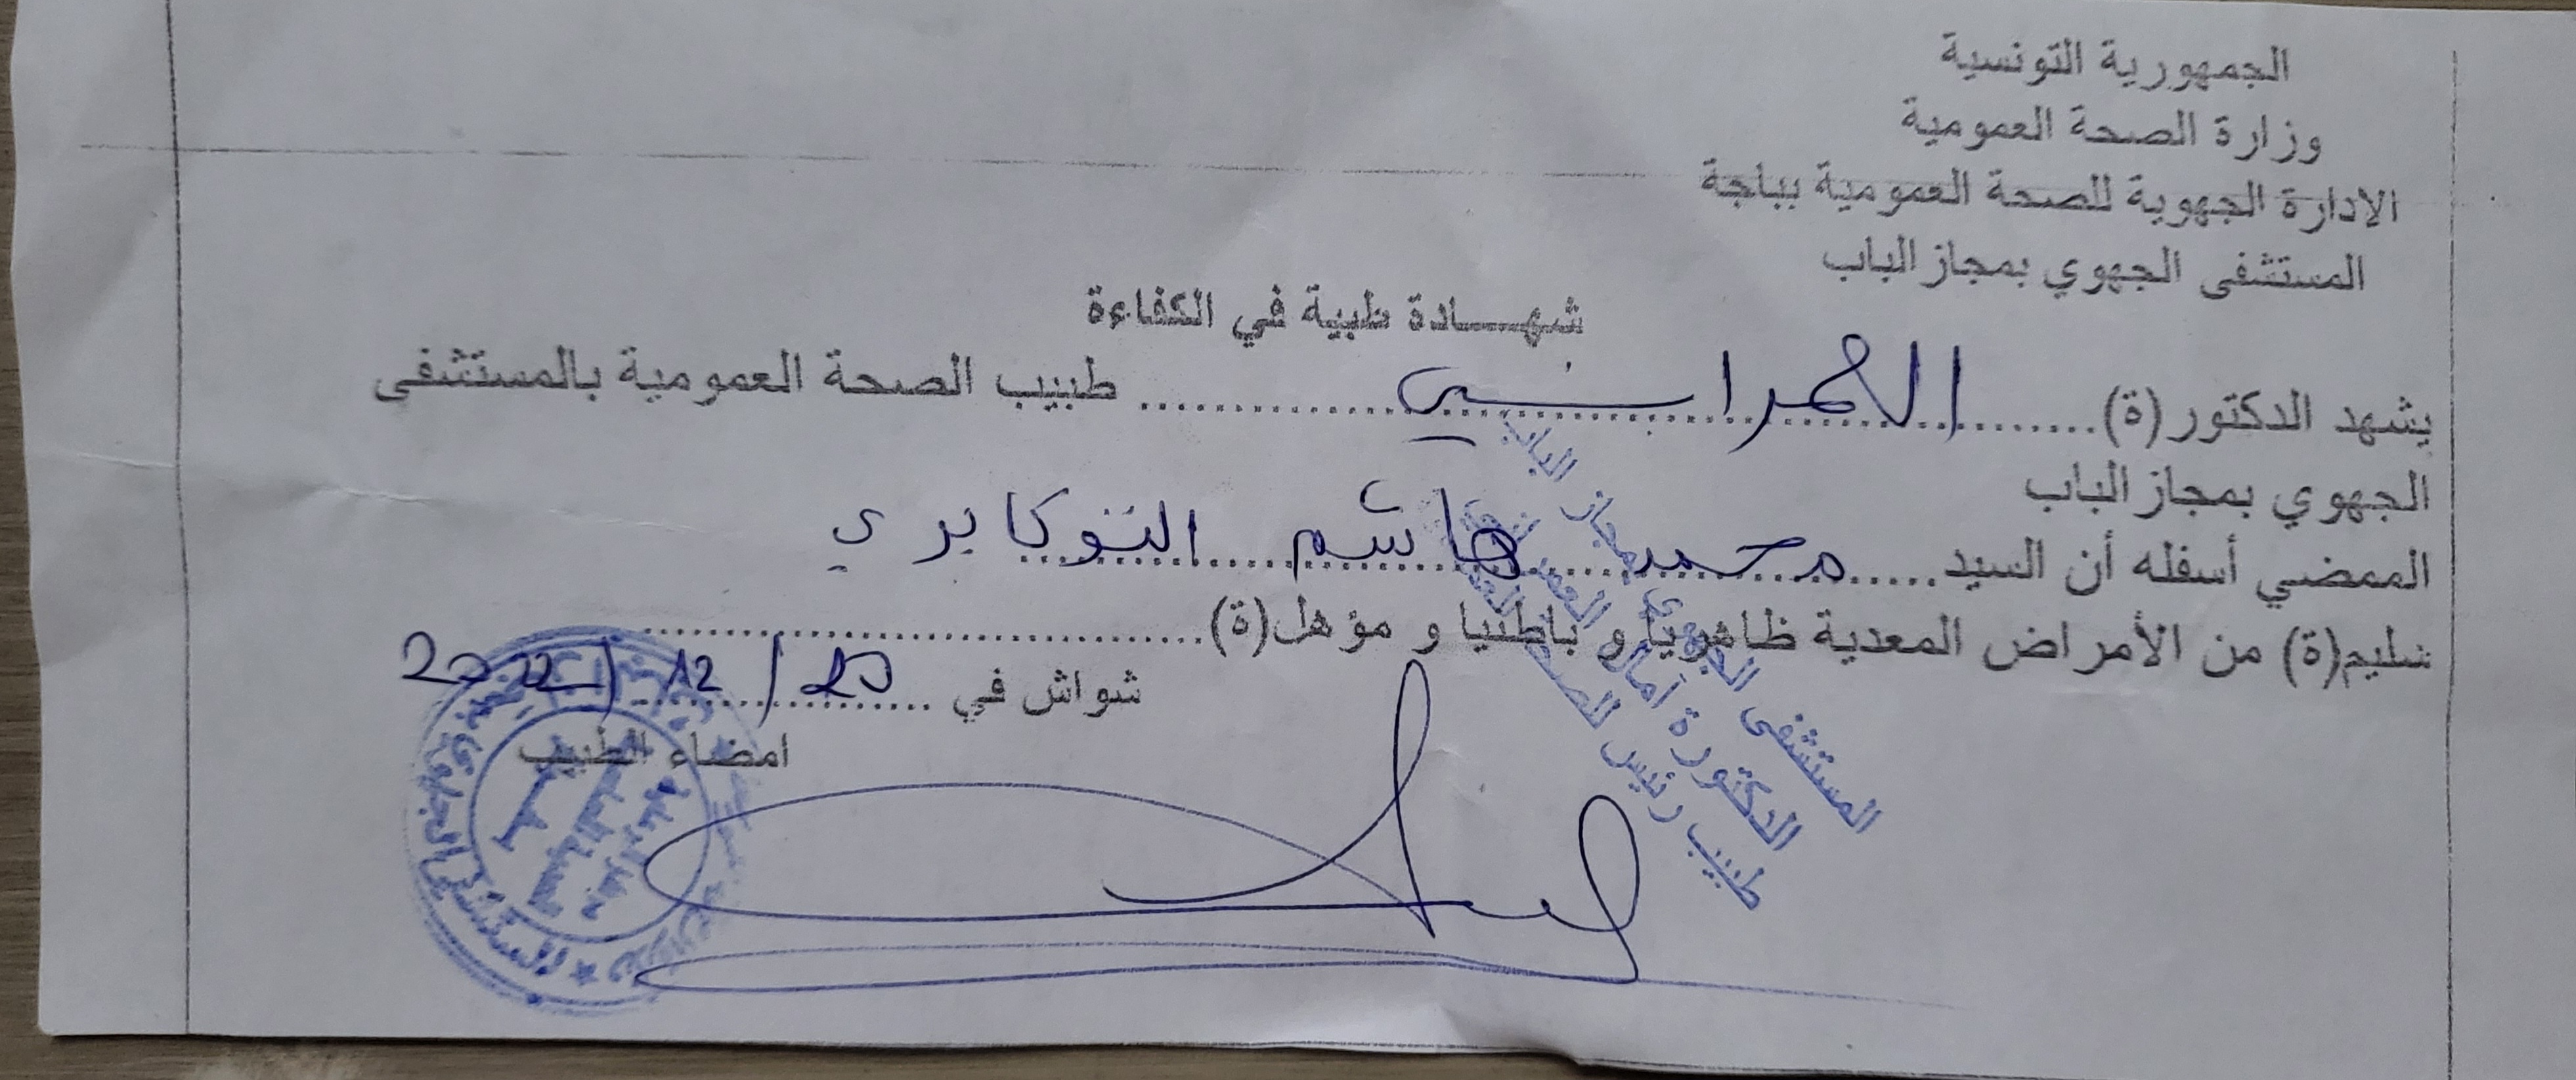 الجمهورية التونسية
وزارة الصحة العمومية
الادارة الجهوية للصحة العمومية بباجة
المستشفى الجهوي بمجاز الباب
شهـــادة طبية في الكفاءة
يشهد الدكتور(ة)........ العمراني ........ طبيب الصحة العمومية بالمستشفى
الجهوي بمجاز الباب
الممضي أسفله أن السيد..... محمد هاشم التوكابري
سليم(ة) من الأمراض المعدية ظاهريا و باطنيا و مؤهل(ة)........
شواش في /12/2022
امضاء الطبيب
المستشفى الجهوي بمجاز الباب
الدكتورة آمال
طبيب رئيس للصحة